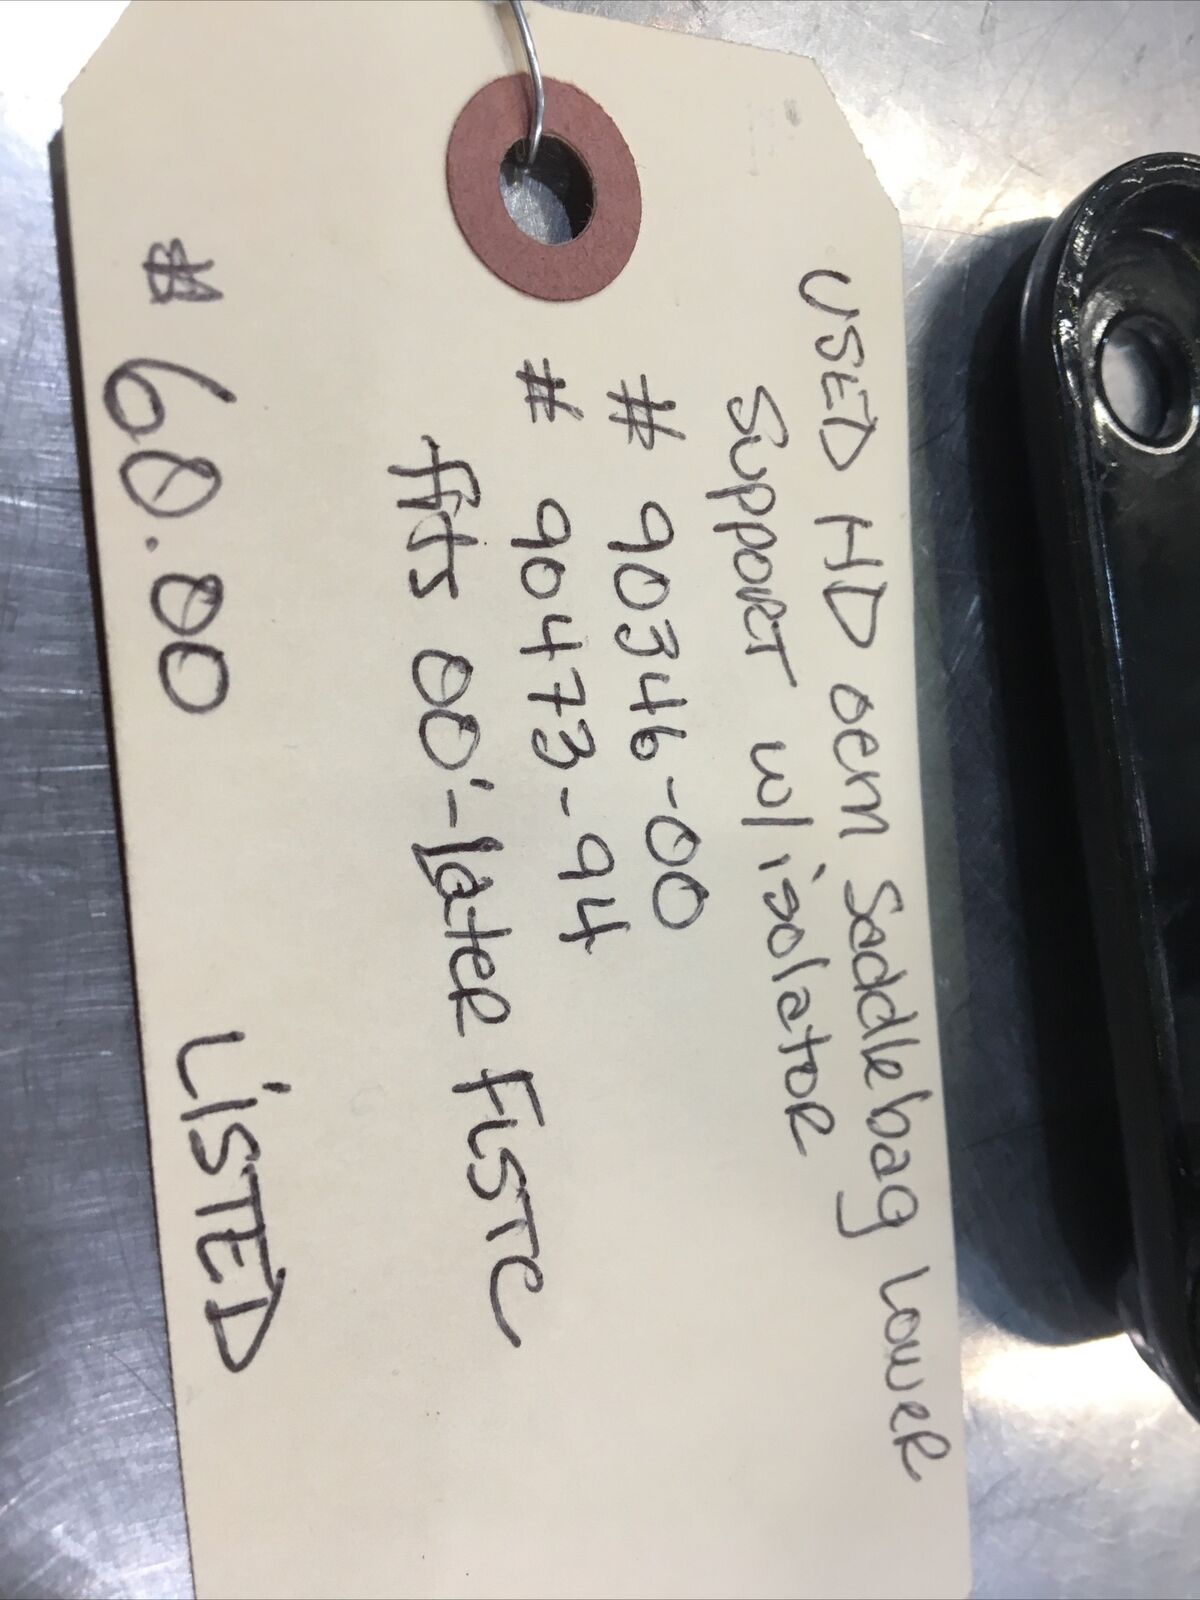 USED HD oem Saddlebag Lower
Support w/ isolator
# 90346-00
# 90473-94
fits 00'-later FLSTC
$ 60.00 LISTED